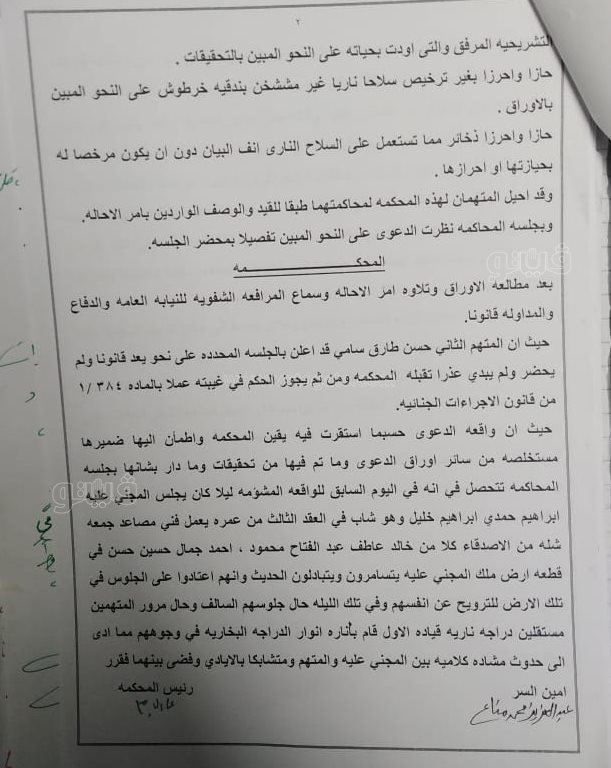 ٢
التشريحيه المرفق والتى اودت بحياته على النحو المبين بالتحقيقات .
حازا واحرزا بغير ترخيص سلاحا ناريا غير مششخن بندقيه خرطوش على النحو المبين
بالاوراق .
حازا واحرزا ذخائر مما تستعمل على السلاح النارى انف البيان دون ان يكون مرخصا له
بحيازتها او احرازها .
وقد احيل المتهمان لهذه المحكمه لمحاكمتهما طبقا للقيد والوصف الواردين بامر الاحاله.
وبجلسه المحاكمه نظرت الدعوى على النحو المبين تفصيلا بمحضر الجلسه.
المحكـــــــــــــــمه
بعد مطالعه الاوراق وتلاوه امر الاحاله وسماع المرافعه الشفويه للنيابه العامه والدفاع
والمداوله قانونا.
حيث ان المتهم الثاني حسن طارق سامي قد اعلن بالجلسه المحدده على نحو يعد قانونا ولم
يحضر ولم يبدي عذرا تقبله المحكمه ومن ثم يجوز الحكم في غيبته عملا بالماده ٣٨٤ /١
من قانون الاجراءات الجنائيه.
حيث ان واقعه الدعوى حسبما استقرت فيه يقين المحكمه واطمأن اليها ضميرها
مستخلصه من سائر اوراق الدعوى وما تم فيها من تحقيقات وما دار بشانها بجلسه
المحاكمه تتحصل في انه في اليوم السابق للواقعه المشؤمه ليلا كان يجلس المجني عليه
ابراهيم حمدي ابراهيم خليل وهو شاب في العقد الثالث من عمره يعمل فني مصاعد جمعه
شله من الاصدقاء كلا من خالد عاطف عبد الفتاح محمود ، احمد جمال حسين حسن في
قطعه ارض ملك المجني عليه يتسامرون ويتبادلون الحديث وانهم اعتادوا على الجلوس في
تلك الارض للترويح عن انفسهم وفي تلك الليله حال جلوسهم السالف وحال مرور المتهمين
مستقلين دراجه ناريه قياده الاول قام بأناره انوار الدراجه البخاريه في وجوههم مما ادى
الى حدوث مشاده كلاميه بين المجني عليه والمتهم ومتشابكا بالايادي وفضى بينهما فقرر
امين السر
رئيس المحكمه
فيتو
فيتو
فيتو